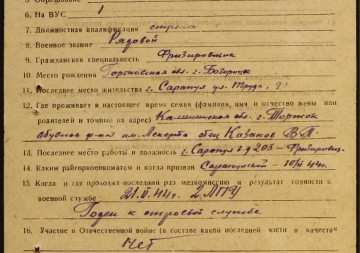 6. На ВУС 1
7. Должностная квалификация стрелок
8. Военное звание Рядовой
9. Гражданская специальность Фрезировщик
10. Место рождения Горьковская обл. г. Богородск
11. Последнее место жительства г. Сарапул ул. Труда,
12. Где проживает в настоящее время семья (фамилия, имя и отчество жены или
родителей и точный их адрес) Калининская обл. г. Торжок
обувная ф-ка отец Казаков В.П.
13. Последнее место работы и должность г. Сарапул з-д 203 – Фрезировщ.
14. Каким райгорвоенкоматом и когда призван Сарапульский –
15. Когда и где проходил последний раз медкомиссию и результат годности к
военной службе 21.II.44г. 2 МПУ
Годен к строевой службе
16. Участие в Отечественной войне (в составе какой последней части и в качестве
Нет